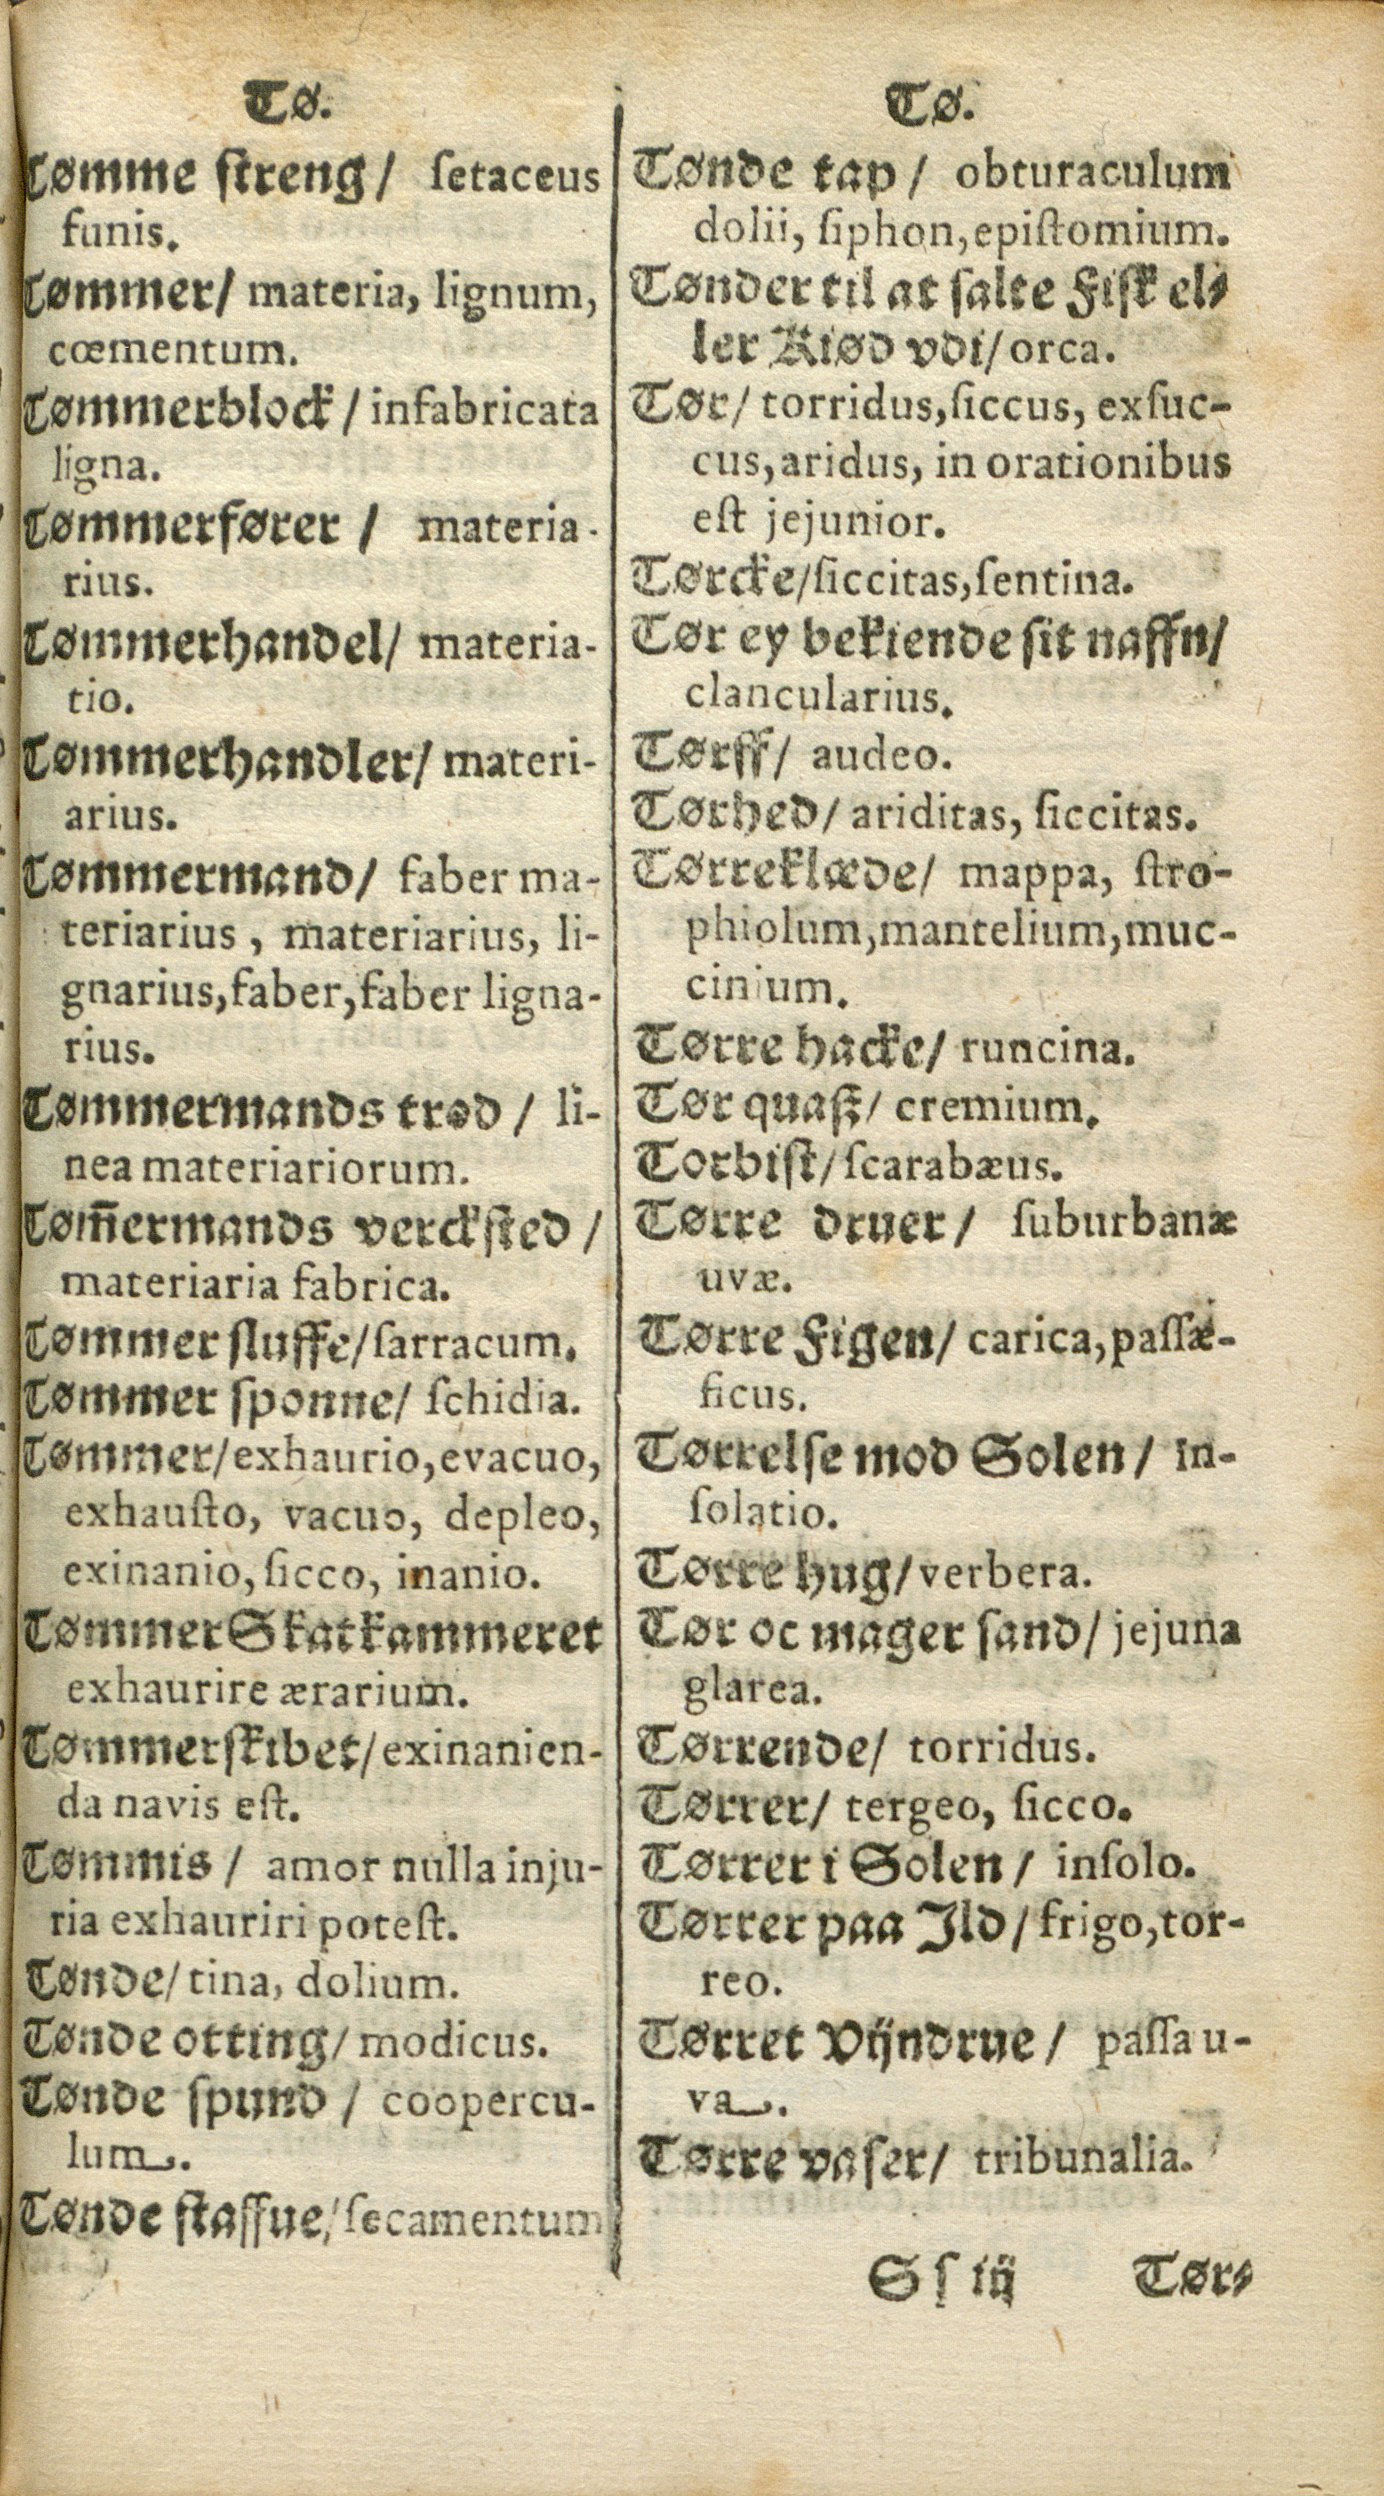 Tø.
Tømme ſtreng/ ſetaceus
funis.
Tømmer/ materia, lignum,
cœmentum.
Tømmerblock/ infabricata
ligna.
Tømmerfører/ materia-
rius.
Tømmerhandel/ materia-
tio.
Tømmerhandler/ materi-
arius.
Tømmermand/ faber ma-
teriarius, materiarius, li-
gnarius, faber, faber ligna-
rius.
Tømmermands trød/ li-
nea materiariorum.
Tøm̃ermands verckſted/
materiaria fabrica.
Tømmer ſluffe/ ſarracum.
Tømmer ſponne/ ſchidia.
Tømmer/ exhaurio, evacuo,
exhauſto, vacuo, depleo,
exinanio, ſicco, inanio.
Tømmer Skatkammeret
exhaurire ærarium.
Tømmer ſkibet/ exinanien-
da navis eſt.
Tømmis/ amor nulla inju-
ria exhauriri poteſt.
Tønde/ tina, dolium.
Tønde otting/ modicus.
Tønde ſpund/ coopercu-
lum.
Tønde ſtaffue/ ſecamentum
Tø.
Tønde tap/ obturaculum
dolii, ſiphon, epiſtomium.
Tønder til at ſalte Fiſk el-
ler Kiød vdi/ orca.
Tør/ torridus, ſiccus, exſuc-
cus, aridus, in orationibus
eſt jejunior.
Tørcke/ ſiccitas, ſentina.
Tør ey bekiende ſit naffn/
clancularius.
Tørff/ audeo.
Tørhed/ ariditas, ſiccitas.
Tørreklæde/ mappa, ſtro-
phiolum, mantelium, muc-
cinium.
Tørre hacke/ runcina.
Tør quaſt/ cremium.
Torbiſt/ ſcarabæus.
Tørre druer/ ſuburbanæ
uvæ.
Tørre Figen/ carica, paſſæ-
ficus.
Tørrelſe mod Solen/ in-
ſolatio.
Tørre hug/ verbera.
Tør oc mager ſand/ jejuna
glarea.
Tørrende/ torridus.
Tørrer/ tergeo, ſicco.
Tørrer i Solen/ inſolo.
Tørrer paa Ild/ frigo, tor-
reo.
Tørret Vijndrue/ paſſa u-
va.
Tørre vaſer/ tribunalia.
S ſ iij Tør-